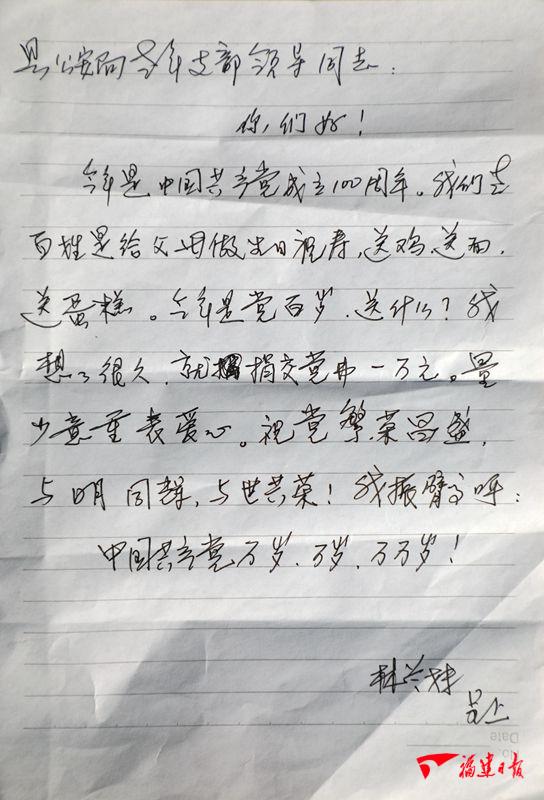 县公安局老年支部领导同志：
你们好！
今年是中国共产党成立100周年。我们老
百姓是给父母做生日祝寿，送鸡、送面、
送蛋糕。今年是党百岁，送什么？我
想了很久，就捐交党费一万元。量
少意重表爱心。祝党繁荣昌盛，
与日月同辉，与世共荣！我振臂高呼：
中国共产党万岁、万岁、万万岁！
林兰妹
呈上
No.
Date
福建日报